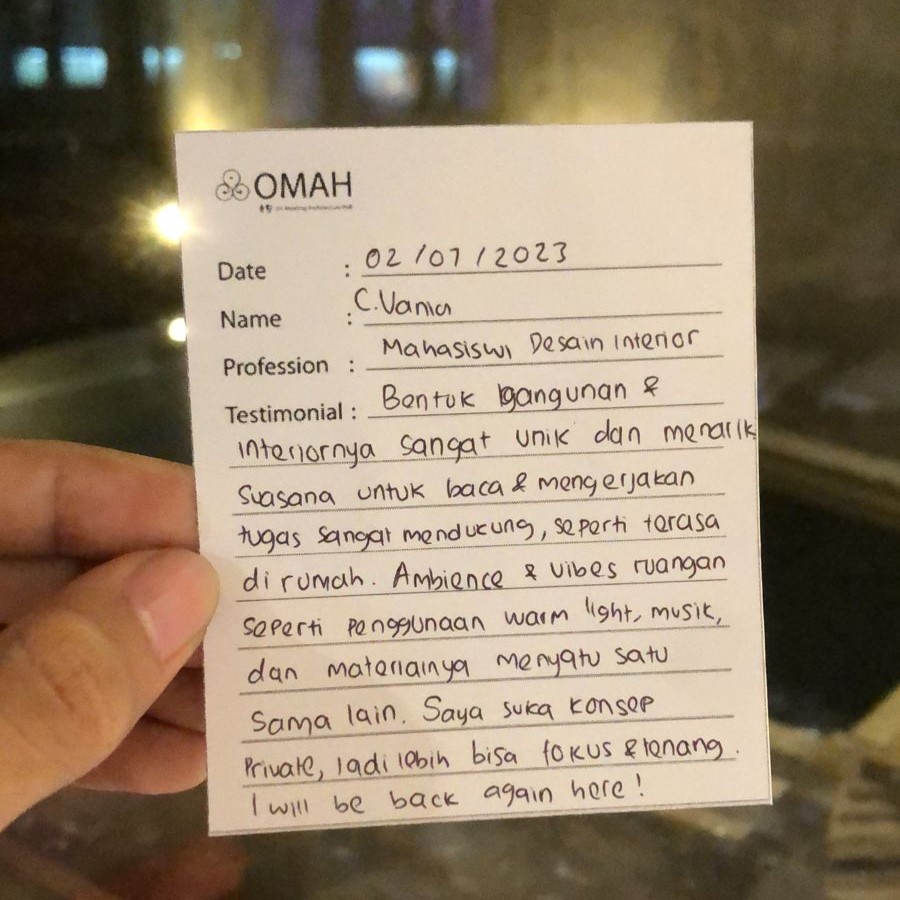 OMAH
Date : 02/07/2023
Name : C.Vania
Profession : Mahasiswi Desain Interior
Testimonial : Bentuk bangunan &
interiornya sangat unik dan menarik
Suasana untuk baca & mengerjakan
tugas sangat mendukung, seperti terasa
di rumah. Ambience & vibes ruangan
seperti penggunaan warm light, musik,
dan materialnya menyatu satu
sama lain. Saya suka konsep
private, jadi lebih bisa fokus & tenang.
I will be back again here!